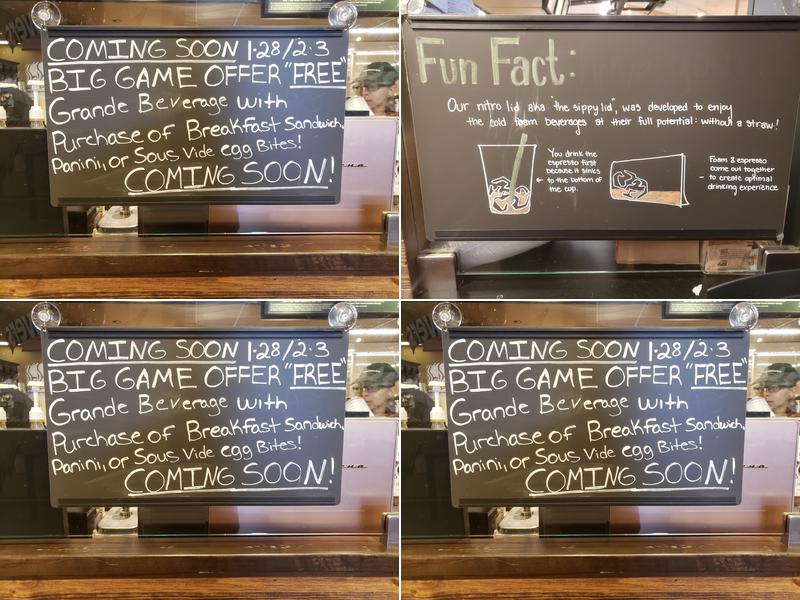 COMING SOON 1·28/2·3
BIG GAME OFFER "FREE"
Grande Beverage with
Purchase of Breakfast Sandwich,
Panini, or Sous Vide egg Bites!
COMING SOON!
Fun Fact:
Our nitro lid aka "the sippy lid", was developed to enjoy
the cold foam beverages at their full potential: without a straw!
You drink the
espresso first
because it sinks
to the bottom of
the cup.
Foam & espresso
come out together
to create optimal
drinking experience
COMING SOON 1·28/2·3
BIG GAME OFFER "FREE"
Grande Beverage with
Purchase of Breakfast Sandwich,
Panini, or Sous Vide egg Bites!
COMING SOON!
COMING SOON 1·28/2·3
BIG GAME OFFER "FREE"
Grande Beverage with
Purchase of Breakfast Sandwich,
Panini, or Sous Vide egg Bites!
COMING SOON!